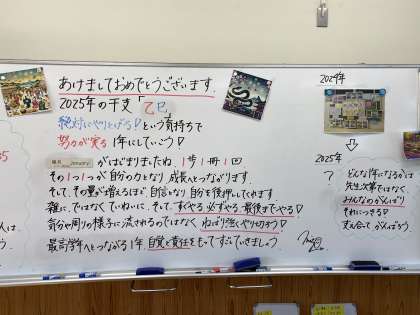 あけましておめでとうございます.
2025年の干支「乙巳」
絶対にやりとげる♡という気持ちで
努力が実る1年にしていこう♡
睦月 January がはじまりましたね. 1歩1冊1回
その1つ1つが自分の力となり成長へとつながります.
そして、その量が増えるほど、自信となり自分を後押ししてくれます
雑に、ではなくていねいに、そして、すぐやる 必ずやる 最後までやる♡
気分や周りの様子に流されるのではなく ねばり強くやり切ろう♡
最高学年へとつながる1年.自覚と責任をもってすごしていきましょう.
2024年
2025年
?
どんな1年になるかは
先生次第ではなく
みんなのがんばり
それにつきる♡
支え合ってがんばろう.